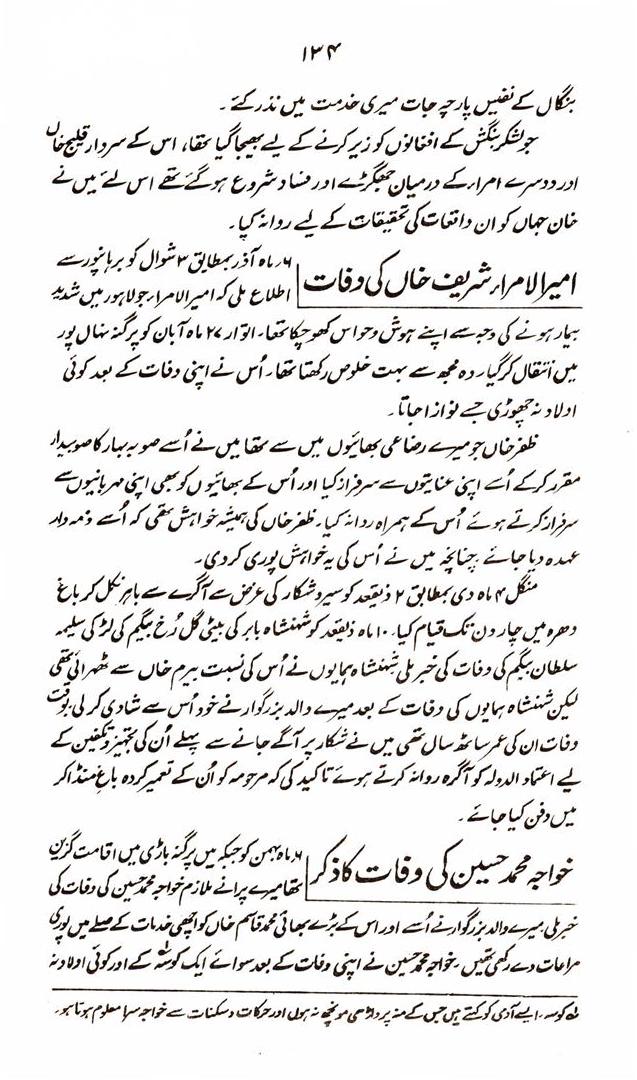 ۱۳۴
بنگال کے نفیس پارچہ جات میری خدمت میں نذر کئے۔
جو لشکر بنگش کے افغانوں کو زیر کرنے کے لیے بھیجا گیا تھا، اس کے سردار قلیج خاں
اور دوسرے امراء کے درمیان جھگڑے اور فساد شروع ہو گئے تھے اس لئے میں نے
خان جہاں کو ان واقعات کی تحقیقات کے لیے روانہ کیا۔
امیر الامراء شریف خاں کی وفات
۱۶ ماہ آذر بمطابق ۳ شوال کو برہانپور سے
اطلاع ملی کہ امیر الامراء جو لاہور میں شدید
بیمار ہونے کی وجہ سے اپنے ہوش و حواس کھو چکا تھا۔ اتوار ۲۷ ماہ آبان کو پرگنہ نہال پور
میں انتقال کر گیا۔ وہ مجھ سے بہت خلوص رکھتا تھا۔ اُس نے اپنی وفات کے بعد کوئی
اولاد نہ چھوڑی جسے نوازا جاتا۔
ظفر خاں جو میرے رضاعی بھائیوں میں سے تھا میں نے اُسے صوبہ بہار کا صوبیدار
مقرر کر کے اُسے اپنی عنایتوں سے سرفراز کیا اور اُس کے بھائیوں کو بھی اپنی مہربانیوں سے
سرفراز کرتے ہوئے اُس کے ہمراہ روانہ کیا۔ ظفر خاں کی ہمیشہ خواہش تھی کہ اُسے ذمہ دار
عہدہ دیا جائے چنانچہ میں نے اُس کی یہ خواہش پوری کر دی۔
منگل ۴ ماہ دی بمطابق ۲ ذیقعد کو سیر و شکار کی غرض سے آگرے سے باہر نکل کر باغ
دھرہ میں چار دن تک قیام کیا۔ ۱۰ ماہ ذیقعد کو شہنشاہ بابر کی بیٹی گل رُخ بیگم کی لڑکی سلیمہ
سلطان بیگم کی وفات کی خبر ملی شہنشاہ ہمایوں نے اُس کی نسبت بیرم خاں سے ٹھہرائی تھی
لیکن شہنشاہ ہمایوں کی وفات کے بعد میرے والد بزرگوار نے خود اُس سے شادی کر لی بوقت
وفات ان کی عمر ساٹھ سال تھی میں نے شکار پر آگے جانے سے پہلے اُن کی تجہیز و تکفین کے
لیے اعتماد الدولہ کو آگرہ روانہ کرتے ہوئے تاکید کی کہ مرحومہ کو اُن کے تعمیر کردہ باغ منڈاکر
میں دفن کیا جائے۔
خواجہ محمد حسین کی وفات کا ذکر
۱۶ ماہ بہمن کو جبکہ میں پرگنہ باڑی میں اقامت گزین
تھا میرے پرانے ملازم خواجہ محمد حسین کی وفات کی
خبر ملی میرے والد بزرگوار نے اُسے اور اس کے بڑے بھائی محمد قاسم خاں کو اچھی خدمات کے صلے میں پوری
مراعات دے رکھی تھیں۔ خواجہ محمد حسین نے اپنی وفات کے بعد سوائے ایک کوسہ کے اور کوئی اولاد نہ
کوسہ۔ ایسے آدمی کو کہتے ہیں جس کے منہ پر داڑھی مونچھ نہ ہوں اور حرکات و سکنات سے خواجہ سرا معلوم ہوتا ہو۔